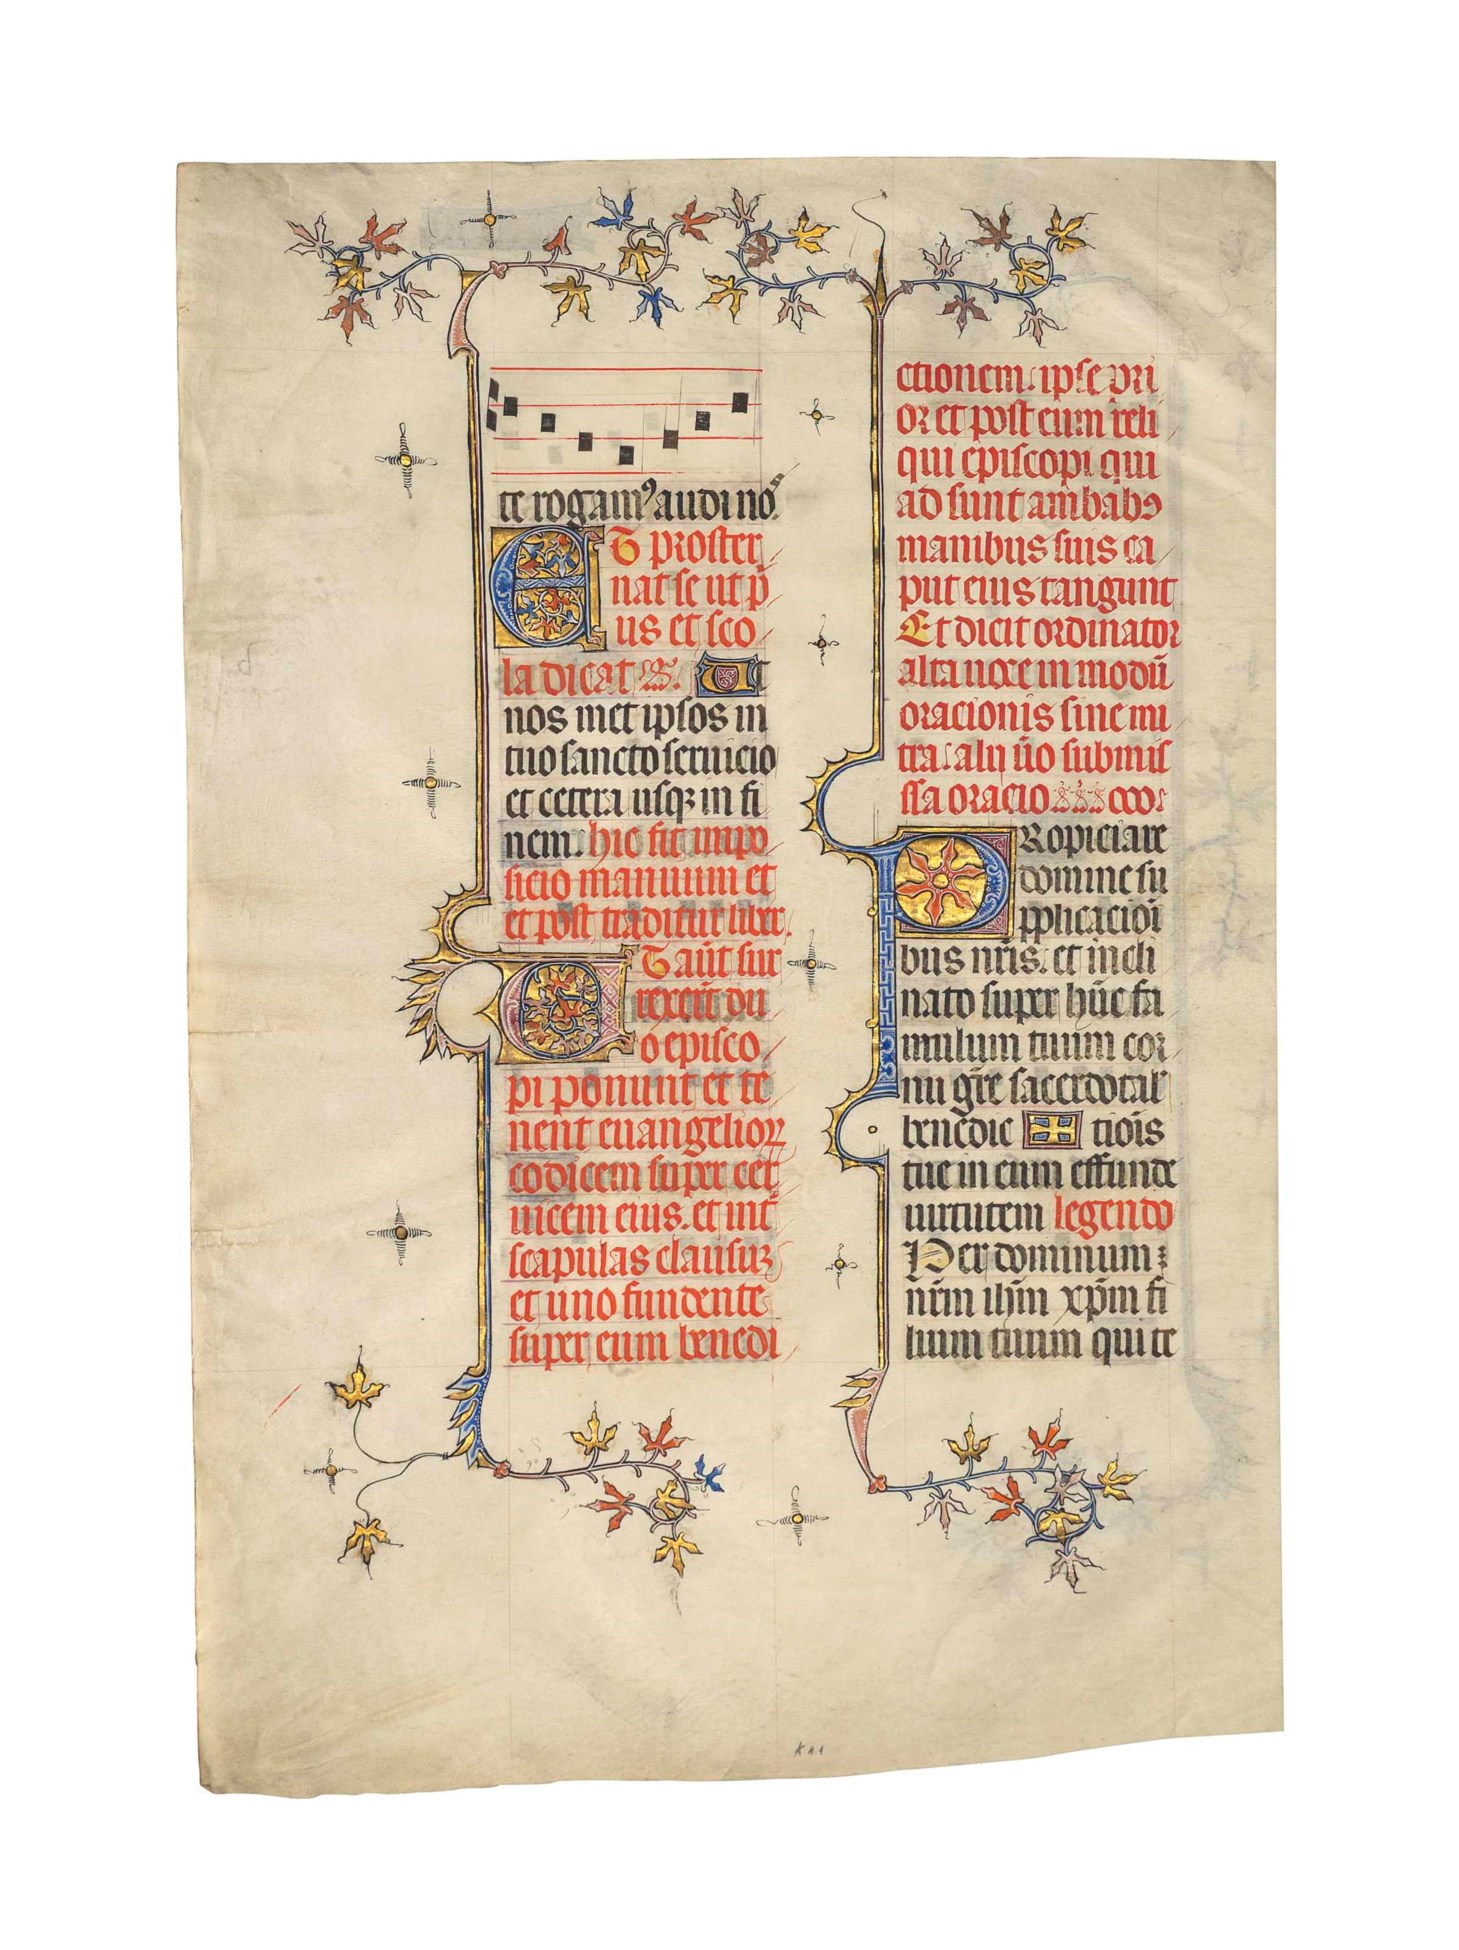 te rogam⁹ audi nos
Et proster
nat se ut p̄
us et sco
la dicat R. Ut
nos met ipsos in
tuo sancto seruicio
et cetera usqꝫ in fi
nem. hic fit impo
sicio manuum et
et post traditur liber.
Et aūt sur
rexerīt du
o episco
pi ponunt et te
nent euangelioꝝ
codicem super cer
uicem eius. et int̄
scapulas clausuꝫ
et uno fundente
super eum benedi
ctionem. ipse pri
or et post eum reli
qui episcopi qui
ad sunt ambabꝯ
manibus suis ca
put eius tangunt
Et dicit ordinator
alta uoxe in modū
oracionis sine mi
tra. alij ūo submis
ssa oracio
Propiciare
domine su
pplicacioī
bus nr̄is. et incli
nato super hūc fa
mulum tuum cor
nu gr̄e sacerdotal̄
benedic tiōis
tue in eum effunde
uirtutem legendo
Per dominum
nr̄m ihm̄ xp̄m fi
lium tuum qui te
K 21